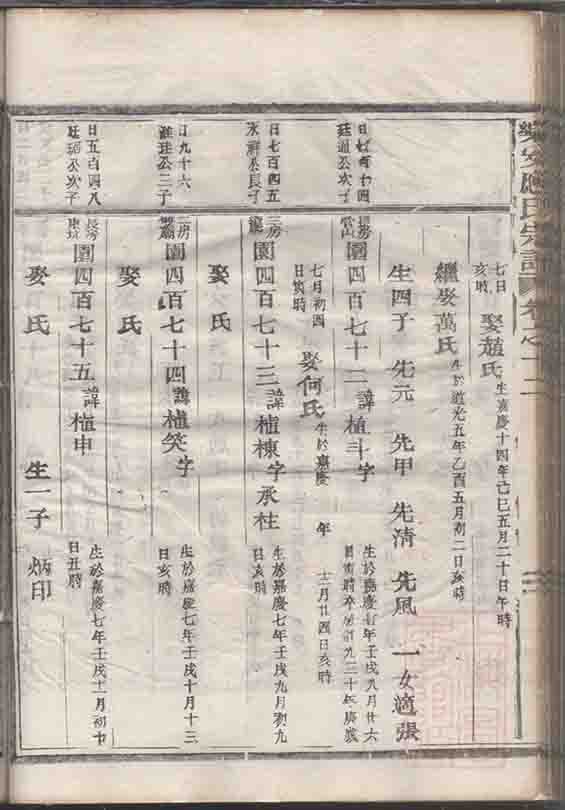 七日
亥時
娶趙氏
生嘉慶十四年己巳五月二十日午時
繼娶萬氏
生於道光五年乙酉五月初二日亥時
生四子 先元 先甲 先清 先風 一女適張
廷通公次子
長房
園四百七十二 諱植三字
生於嘉慶七年壬戌九月廿六
七月初四
日亥時
娶何氏
生於嘉慶 年 十二月廿四日亥時
日七百四五
永祥公長子
三房
園四百七十三 諱植棟字承柱
生於嘉慶七年壬戌九月初九
日亥時
娶氏
日九十六
公三子
三房
園四百七十四 諱植癸字
生於嘉慶七年壬戌十月十三
日亥時
娶氏
日五百四八
廷瑞公次子
長房
園四百七十五 諱植申
生於嘉慶七年壬戌十一月初十
日丑時
娶氏 生一子 炳印